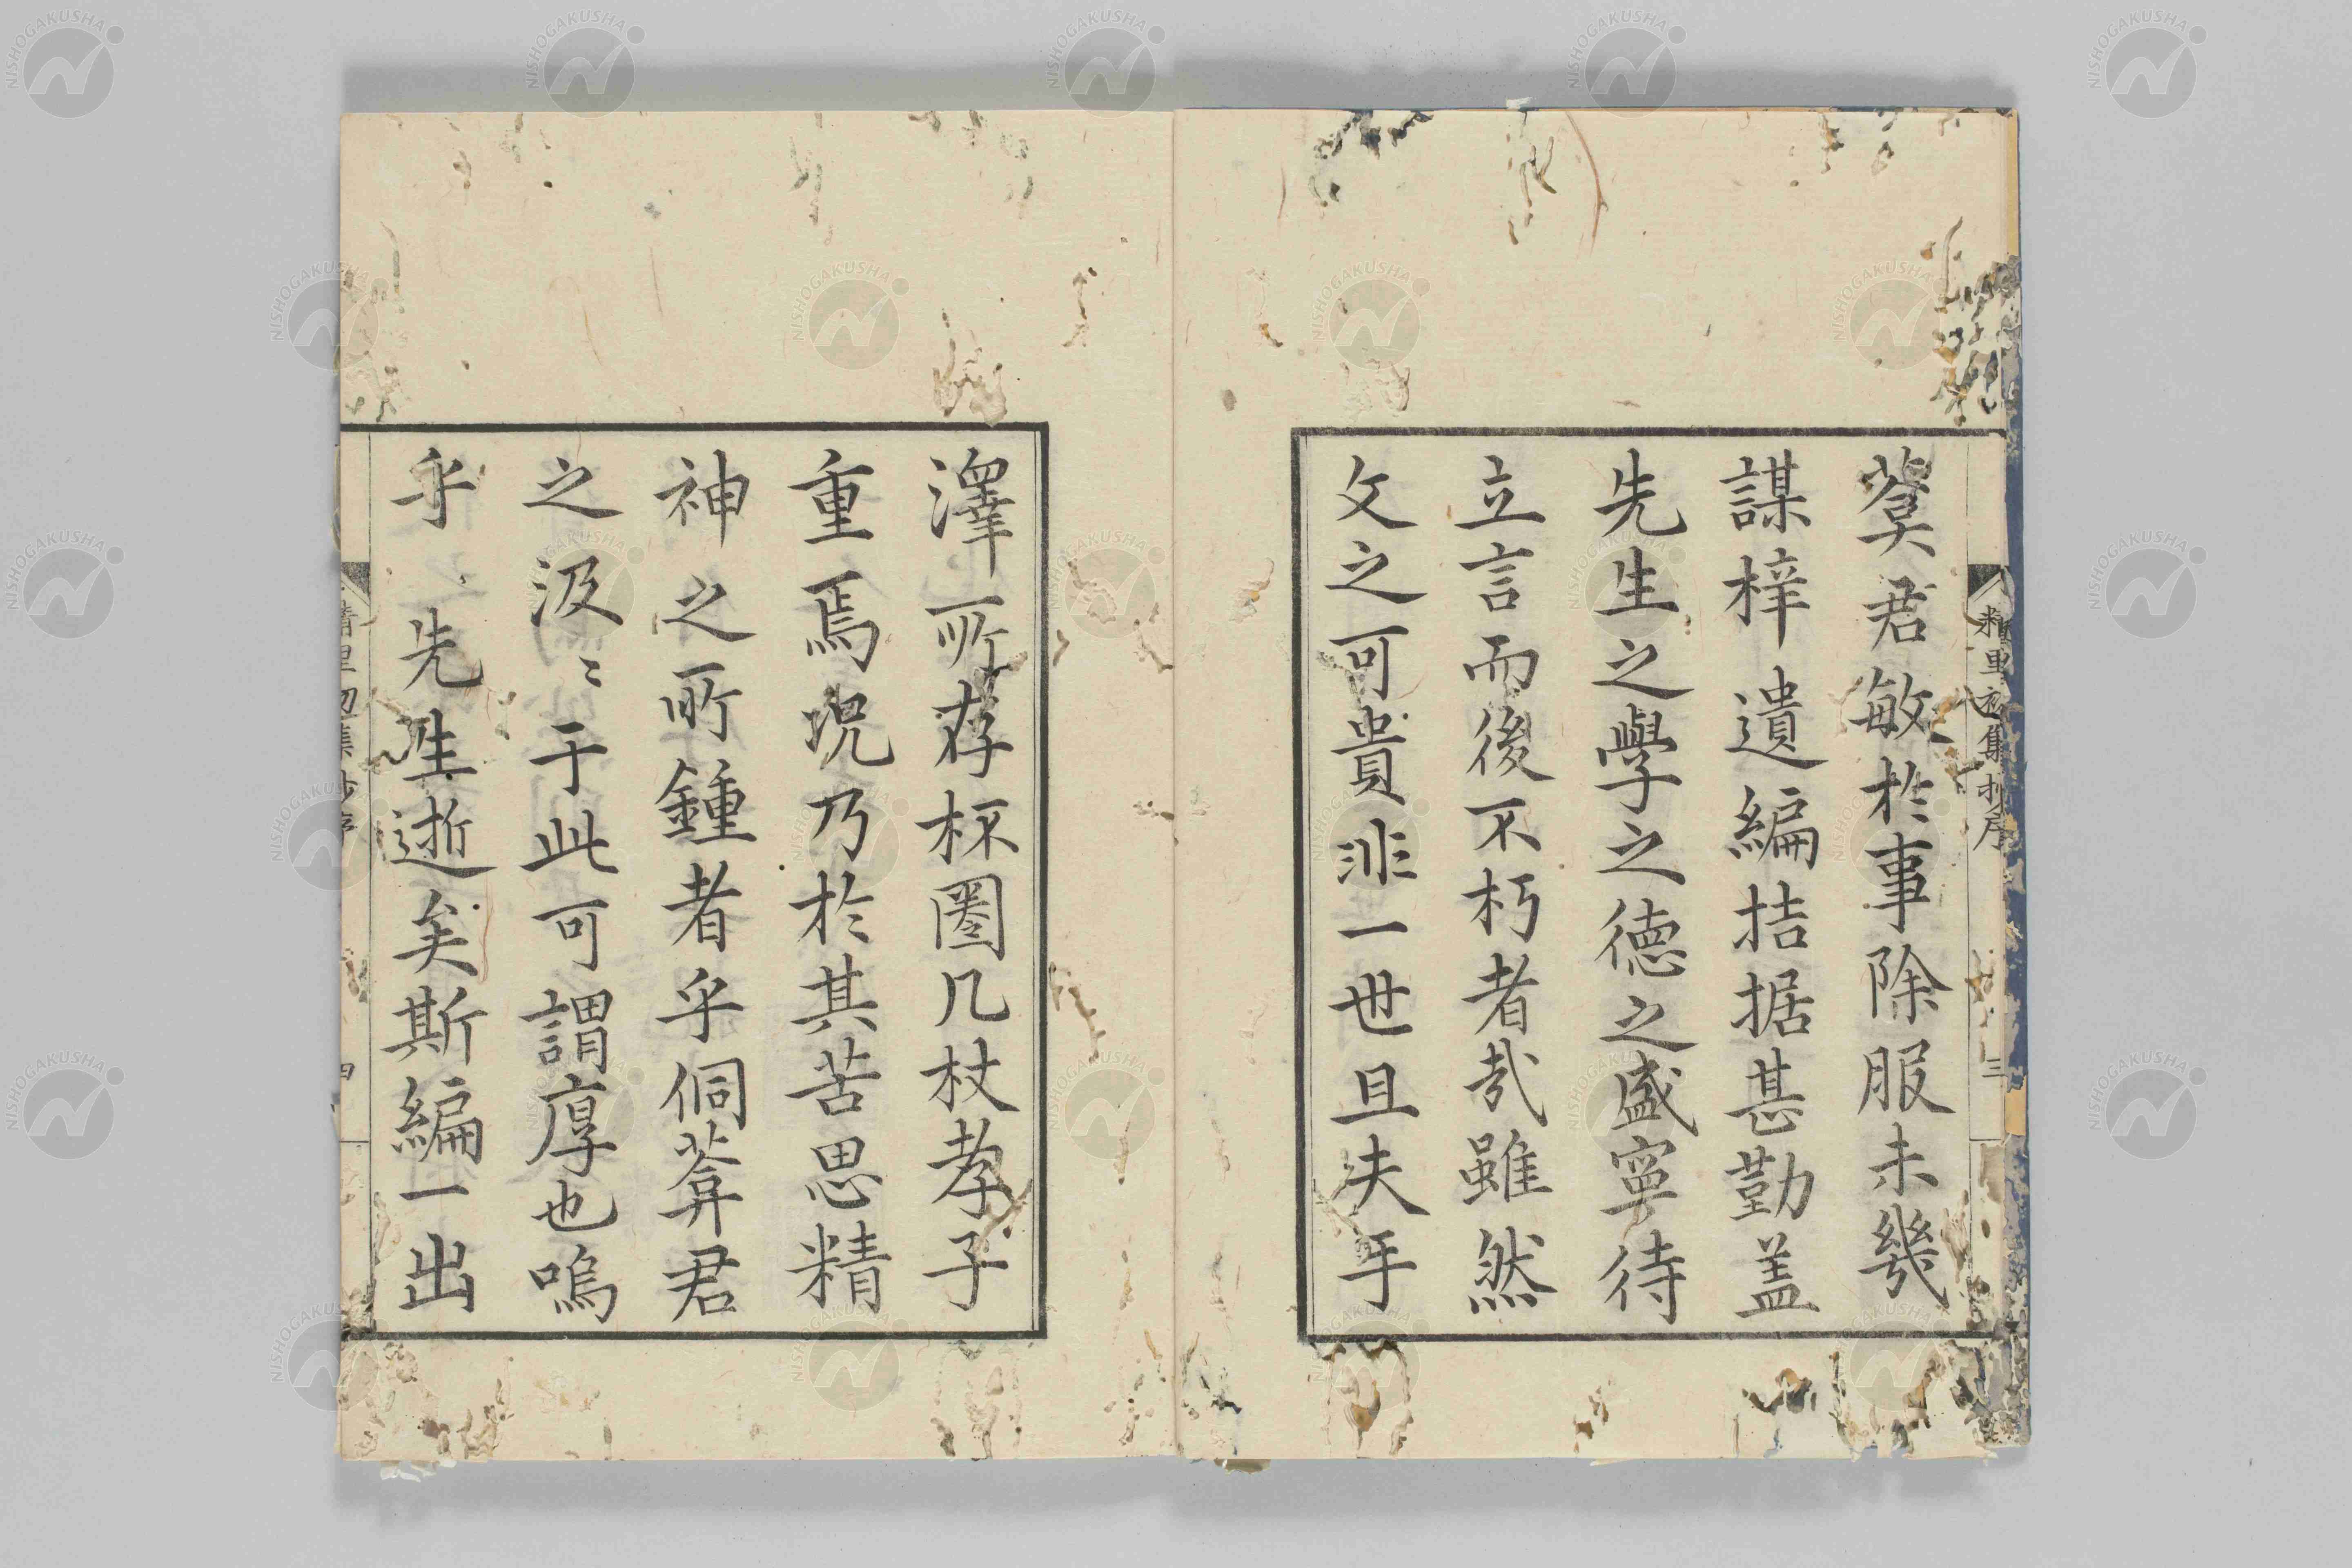 糞君敏於事除服未幾
謀梓遺編拮据甚勤盖
先生之學之德之盛寧待
立言而後不朽者哉雖然
文之可貴非一世且夫手
澤所存杯圈几杖孝子
重焉況乃於其苦思精
神之所鍾者乎侗葊君
之汲〻于此可謂厚也嗚
乎先生逝矣斯編一出
三
四
NISHOGAKUSHA